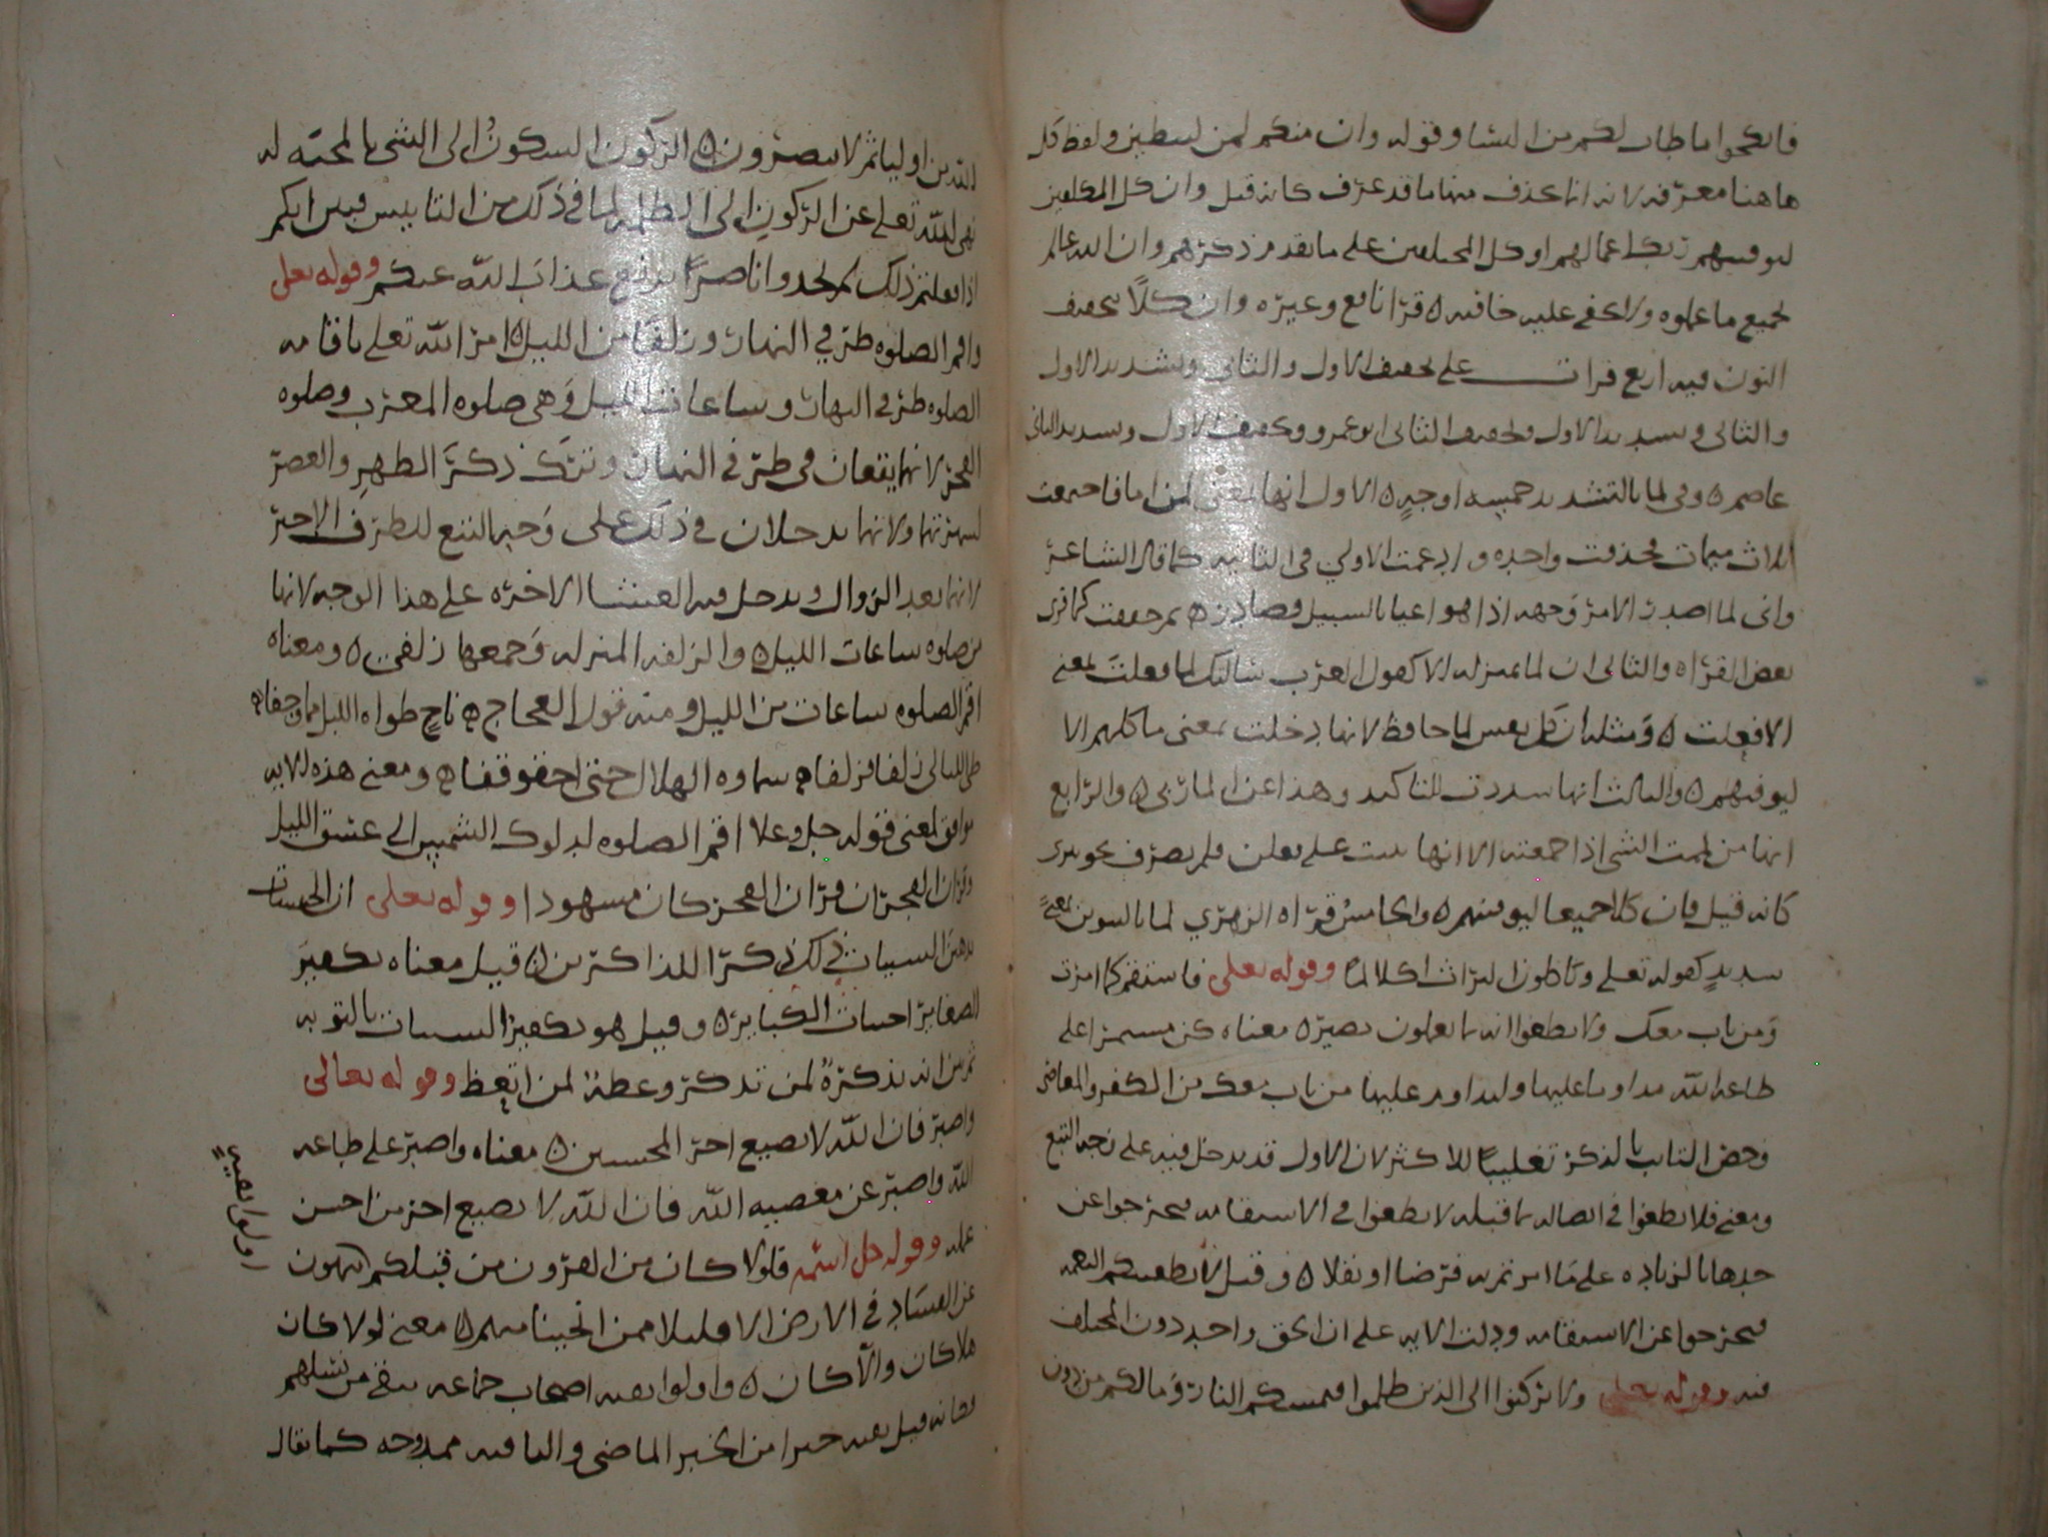 فانكحوا ما طاب لكم من النسا وقوله وان منكم لمن ليبطين ولفظ كل
هاهنا معرفه لانه انما حذف منها ما قد عرف كانه قيل وان كل المكلفين
ليوفينهم ربك اعمالهم او كل المختلفين على ما تقدم من ذكرهم وان الله عالم
بجميع ما عملوه ولا تخفى عليه خافيه ٥ قرا نافع وغيره وان كلا بتخفيف
النون فيه اربع قرات على تخفيف الاول والثاني وتشديد الاول
والثاني وتشديد الاول وتخفيف الثاني ابو عمرو وتخفيف الاول وتشديد الثاني
عاصم ٥ وفي لما بالتشديد خمسه اوجه ٥ الاول انها بمعنى لمن ما فاجتمعت
ثلاث ميمات فحذفت واحده وادغمت الاولي في الثانيه كما قال الشاعر
واني لما اصدر الامر وجهه اذا هو اعيا بالسبيل مصادره ٥ ثم خففت كما قرى
بعض القراه والثاني ان لما بمنزله الا كقول العرب سالتك لما فعلت بمعنى
الا فعلت ٥ ومثله ان كل نفس لما عليها حافظ لانها دخلت بمعنى ما كلهم الا
ليوفينهم ٥ والثالث انها شددت للتاكيد وهذا عن المازني ٥ والرابع
انها من لممت الشي اذا جمعته الا انها بنيت على فعلى فلم يصرف نحو تترى
كانه قيل وان كلا جميعا ليوفينهم ٥ والخامس قراه الزهري لما بالتنوين بمعنى
شديد كقوله تعلى وتاكلون التراث اكلا لما وقوله تعلى فاستقم كما امرت
ومن تاب معك ولا تطغوا انه بما تعملون بصير ٥ معناه كن مستمرا على
طاعه الله مداوما عليها وليداوم عليها من تاب معك من الكفر والمعاصي
وخص التايب بالذكر تغليبا للاكثر لان الاول قد يدخل فيه على وجه التبع
ومعنى فلا تطغوا في اتصاله بما قبله لا تطغوا في الاستقامه فتخرجوا عن
حدها بالزياده على ما امرتم به فرضا او نفلا ٥ وقيل لا تطغينكم النعمه
فتخرجوا عن الاستقامه ودلت الايه على ان الحق واحد دون المختلف
فيه وقوله تعلى ولا تركنوا الى الذين ظلموا فتمسكم النار وما لكم من دون
الله من اوليا ثم لا تنصرون ٥ الركون السكون الى الشي بالمحبه له
نهى الله تعلى عن الركون الى الظلمه لما في ذلك من التانيس فبين انكم
اذا فعلتم ذلك لم تجدوا ناصرا يدفع عذاب الله عنكم وقوله تعلى
واقم الصلوه طرفي النهار وزلفا من الليل ٥ امر الله تعلى باقامه
الصلوه طرفي النهار وساعات الليل وهي صلوه المغرب وصلوه
الفجر لانهما يقعان في طرفي النهار وترك ذكر الظهر والعصر
لشهرتهما ولانهما يدخلان في ذلك على وجه التبع للطرف الاخر
لانهما بعد الزوال ويدخل فيه العشا الاخره على هذا الوجه لانها
من صلوه ساعات الليل ٥ والزلفه المنزله وجمعها زلف ٥ ومعناه
اقم الصلوه ساعات من الليل ومنه قول العجاج ٥ ناج طواه الليل مما وجفا ٥
طي الليالي زلفا فزلفا ٥ سماوه الهلال حتى احقوقفا ٥ ومعنى هذه الايه
يوافق لمعنى قوله جل وعلا اقم الصلوه لدلوك الشمس الى غسق الليل
وقران الفجر ان قران الفجر كان مشهودا وقوله تعلى ان الحسنات
يذهبن السيات ذلك ذكرا للذاكرين ٥ قيل معناه تكفير
الصغاير اجتناب الكباير ٥ وقيل هو تكفير السيات بالتوبه
ثم بين انه تذكره لمن تذكر وعظه لمن اتعظ وقوله تعالى
واصبر فان الله لا يضيع اجر المحسنين ٥ معناه واصبر على طاعه
الله واصبر عن معصيه الله فان الله لا يضيع اجر من احسن
عمله وقوله جل اسمه فلولا كان من القرون من قبلكم ينهون
عن الفساد في الارض الا قليلا ممن انجينا منهم ٥ معنى لولا كان
هلا كان والا كان ٥ واولوا بقيه اصحاب جماعه تبقى من نسلهم
فكانه قيل بقيه خيرا من الخير الماضي والباقيه ممدوحه كما يقال
اولوا بقيه